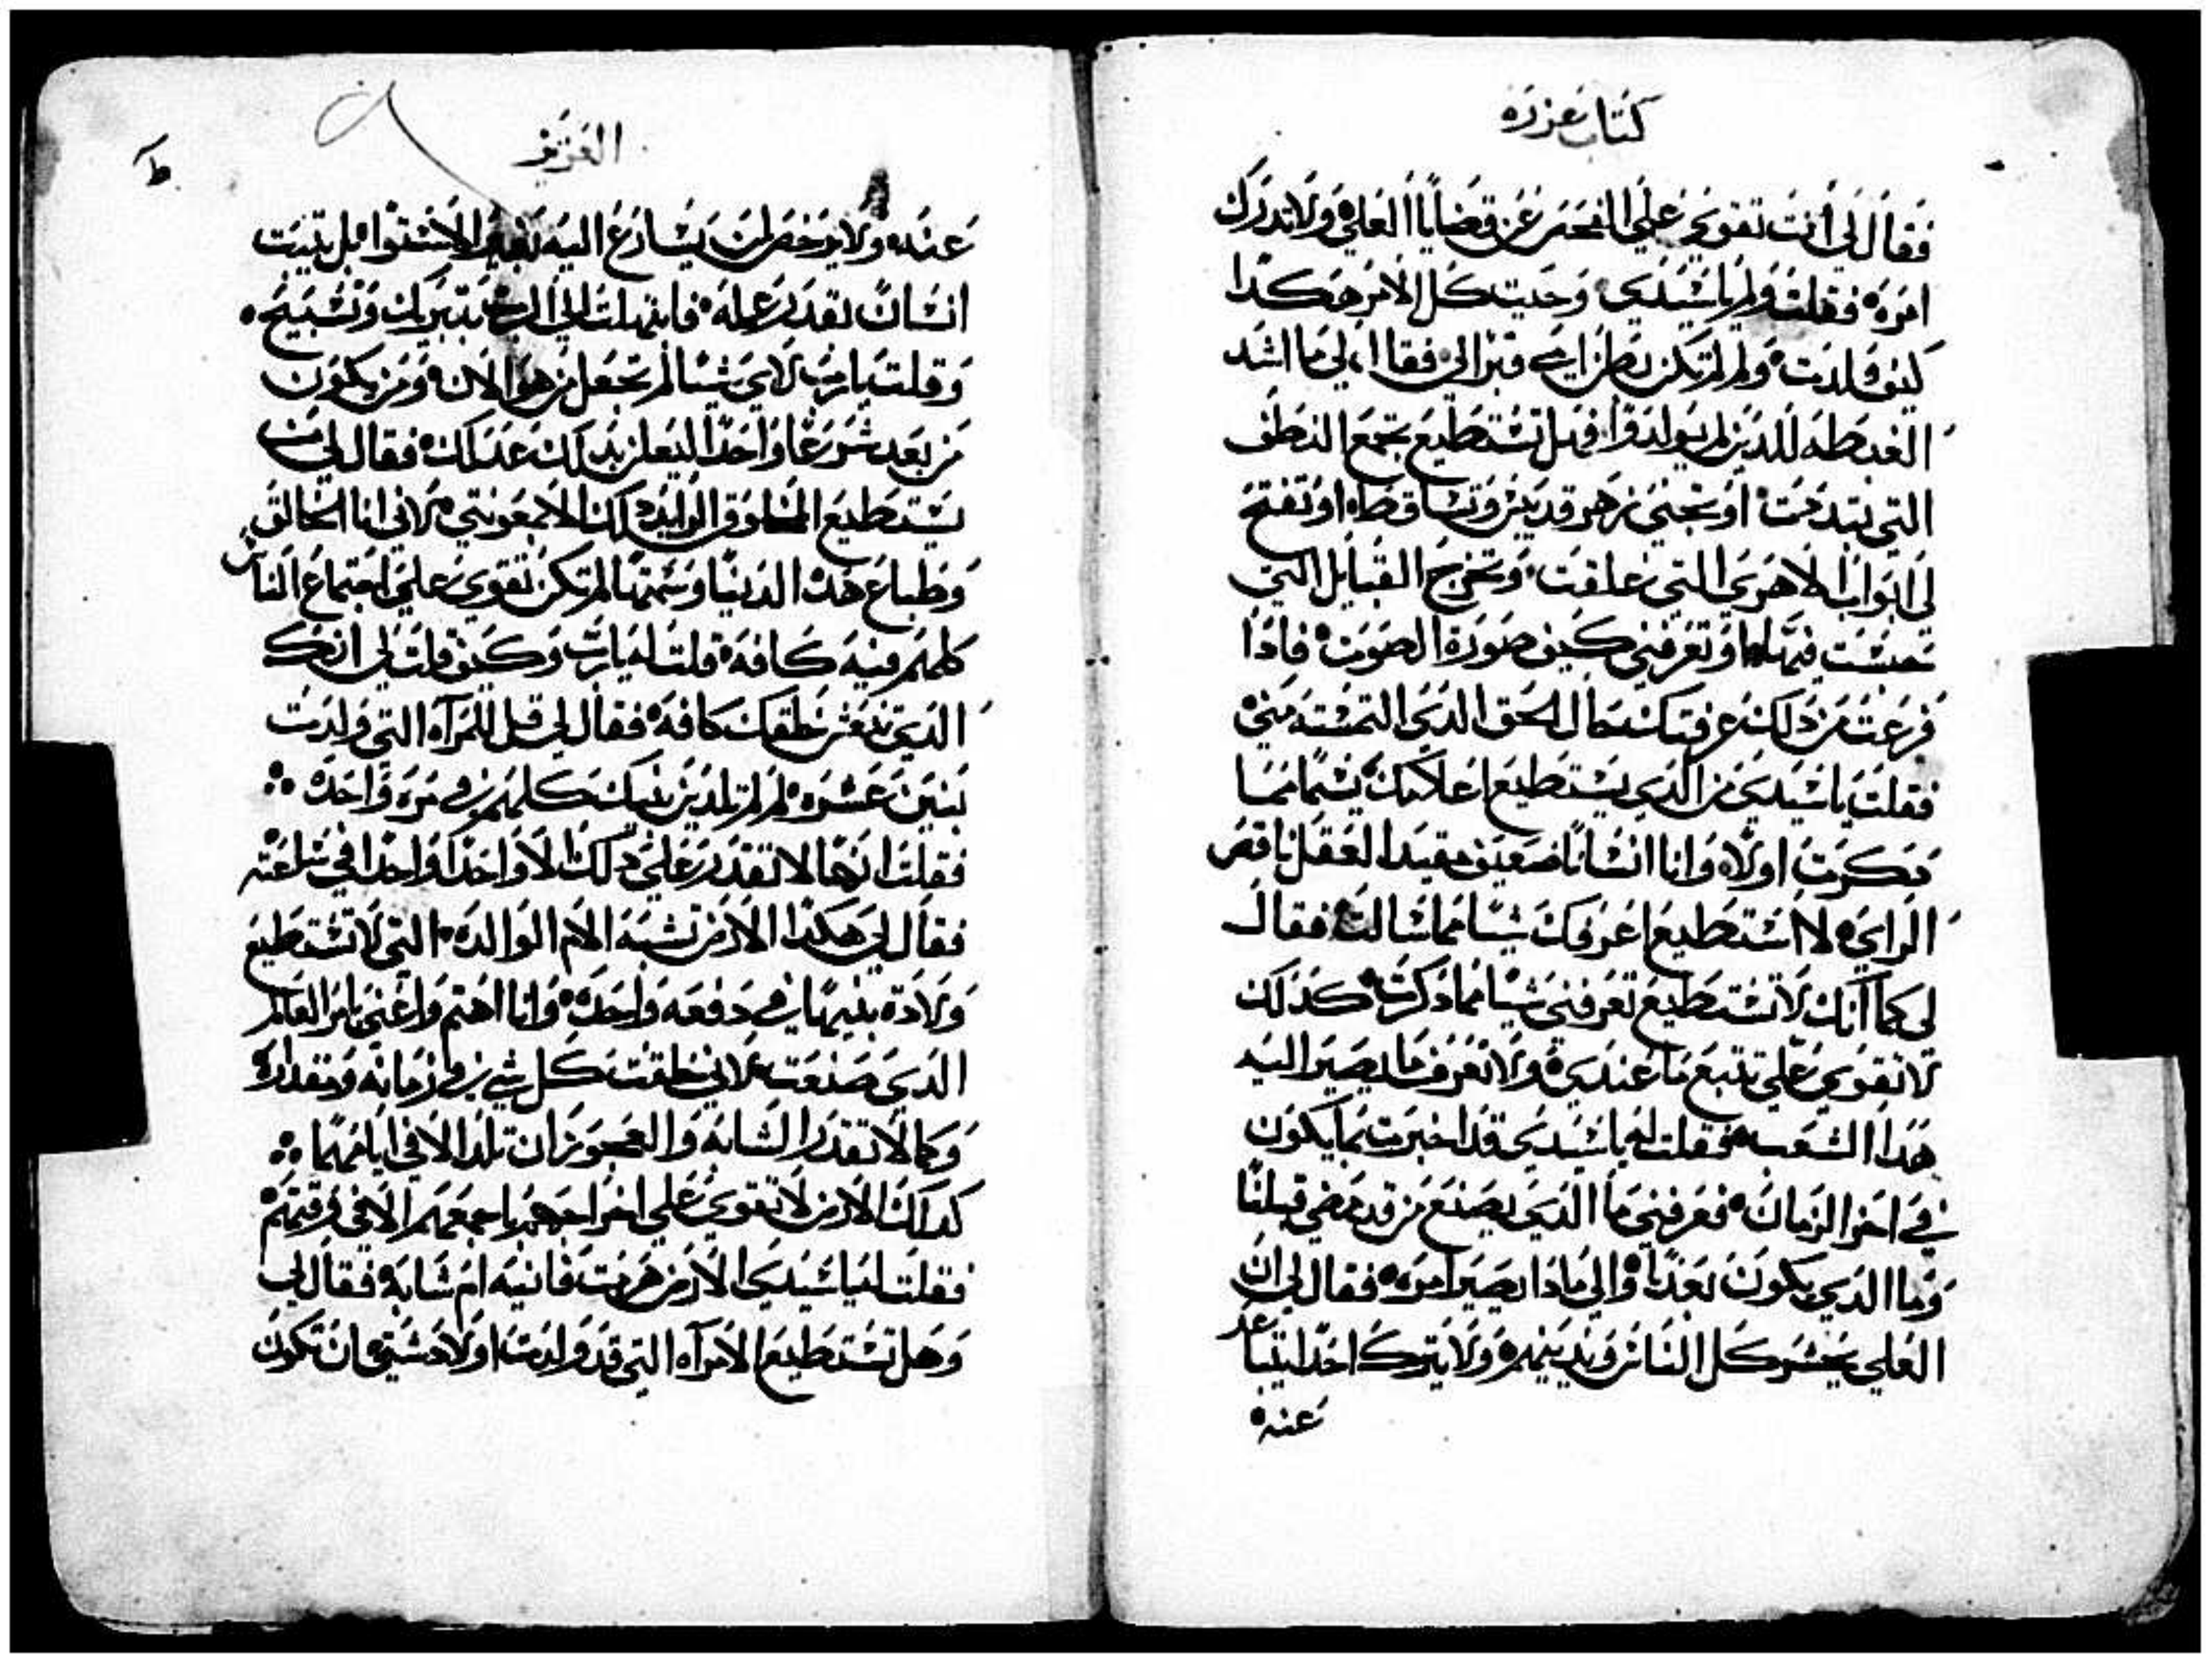 كتاب عزره
فقال لي أنت تقوي علي الفحص عن قضايا العلي ولا تدرك
امره فقلت ولم ياسيدي وحيت كل الامر هكدا
كيف ولدت ولم لم تكن بطن امي قبرا لي فقال لي ما اشد
الغبطه للدين لم يولدوا فهل تستطيع تجمع النطف
التي تبتدت او تجني زهر قد يبس وتساقط او تفتح
لي ابواب الاهري التي غلقت وتخرج القبايل التي
حبست فيها وتعرفني كيف صورة الصوت فادا
فرغت من دلك عرفتك حال الحق الدي التمسته مني
فقلت ياسيدي من الدي يستطيع اعلامك شيا مما
دكرت اولا وانا انسانا ضعيف مقيد العقل ناقص
الراي لا استطيع اعرفك شيا مما سالت فقال
لي كما انك لا تستطيع تعرفني شيا مما دكرت كدلك
لا تقوي علي تتبع ما عندي ولا تعرف ما يصير اليه
هدا الشعب فقلت له ياسيدي قد اخبرت بما يكون
في اخر الزمان فعرفني ما الدي يصنع من قد مضي قبلنا
وما الدي يكون بعدنا والي مادا يصير امره فقال لي ان
العلي يحشر كل الناس ويدينهم ولا يترك احدا يتباعد
عنه
العزيز
ط
عنده ولا يرخص لمن يسارع اليه بغير الاستوا بل يتبت
انسان بقدر عمله فابتهلت الي الرب بتبريك وتسبيح
وقلت يارب لاي شيا لم تجعل من هو الان ومن يكون
من بعد شرعا واحدا ليعلن بدلك عدلك فقال لي من
يستطيع المخلوق الزايد دلك الا بمعونتي لاني انا الخالق
وطباع هده الدنيا وسمتها لم تكن تقوي علي اجتماع الناس
كلهم فيه كافة قلت له يارب وكيف قلت لي انك
الدي تبعث خلقك كافة فقال لي قل للمرآه التي ولدت
بنين عشره لم لم تلدين بنيك كلهم في مره واحده
فقلت انها لا تقدر علي دلك الا واحدا واحدا في ساعته
فقال لي هكدا الارض تشبه الام الوالده التي لا تستطيع
ولادة بنيها في دفعه واحده وانا اهتم واعني بامر العالم
الدي صنعت لاني خلقت كل شي في زمانه ومقداره
وكما لا تقدر الشابه والعجوز ان تلد الا في ايامهما
كدالك الارض لا تقوي علي اخراجهم باجمعهم الا في وقتهم
فقلت له ياسيدي الارض هرمت فانيه ام شابة فقال لي
وهل تستطيع الامرآه التي قد ولدت اولاد شتي ان تكون